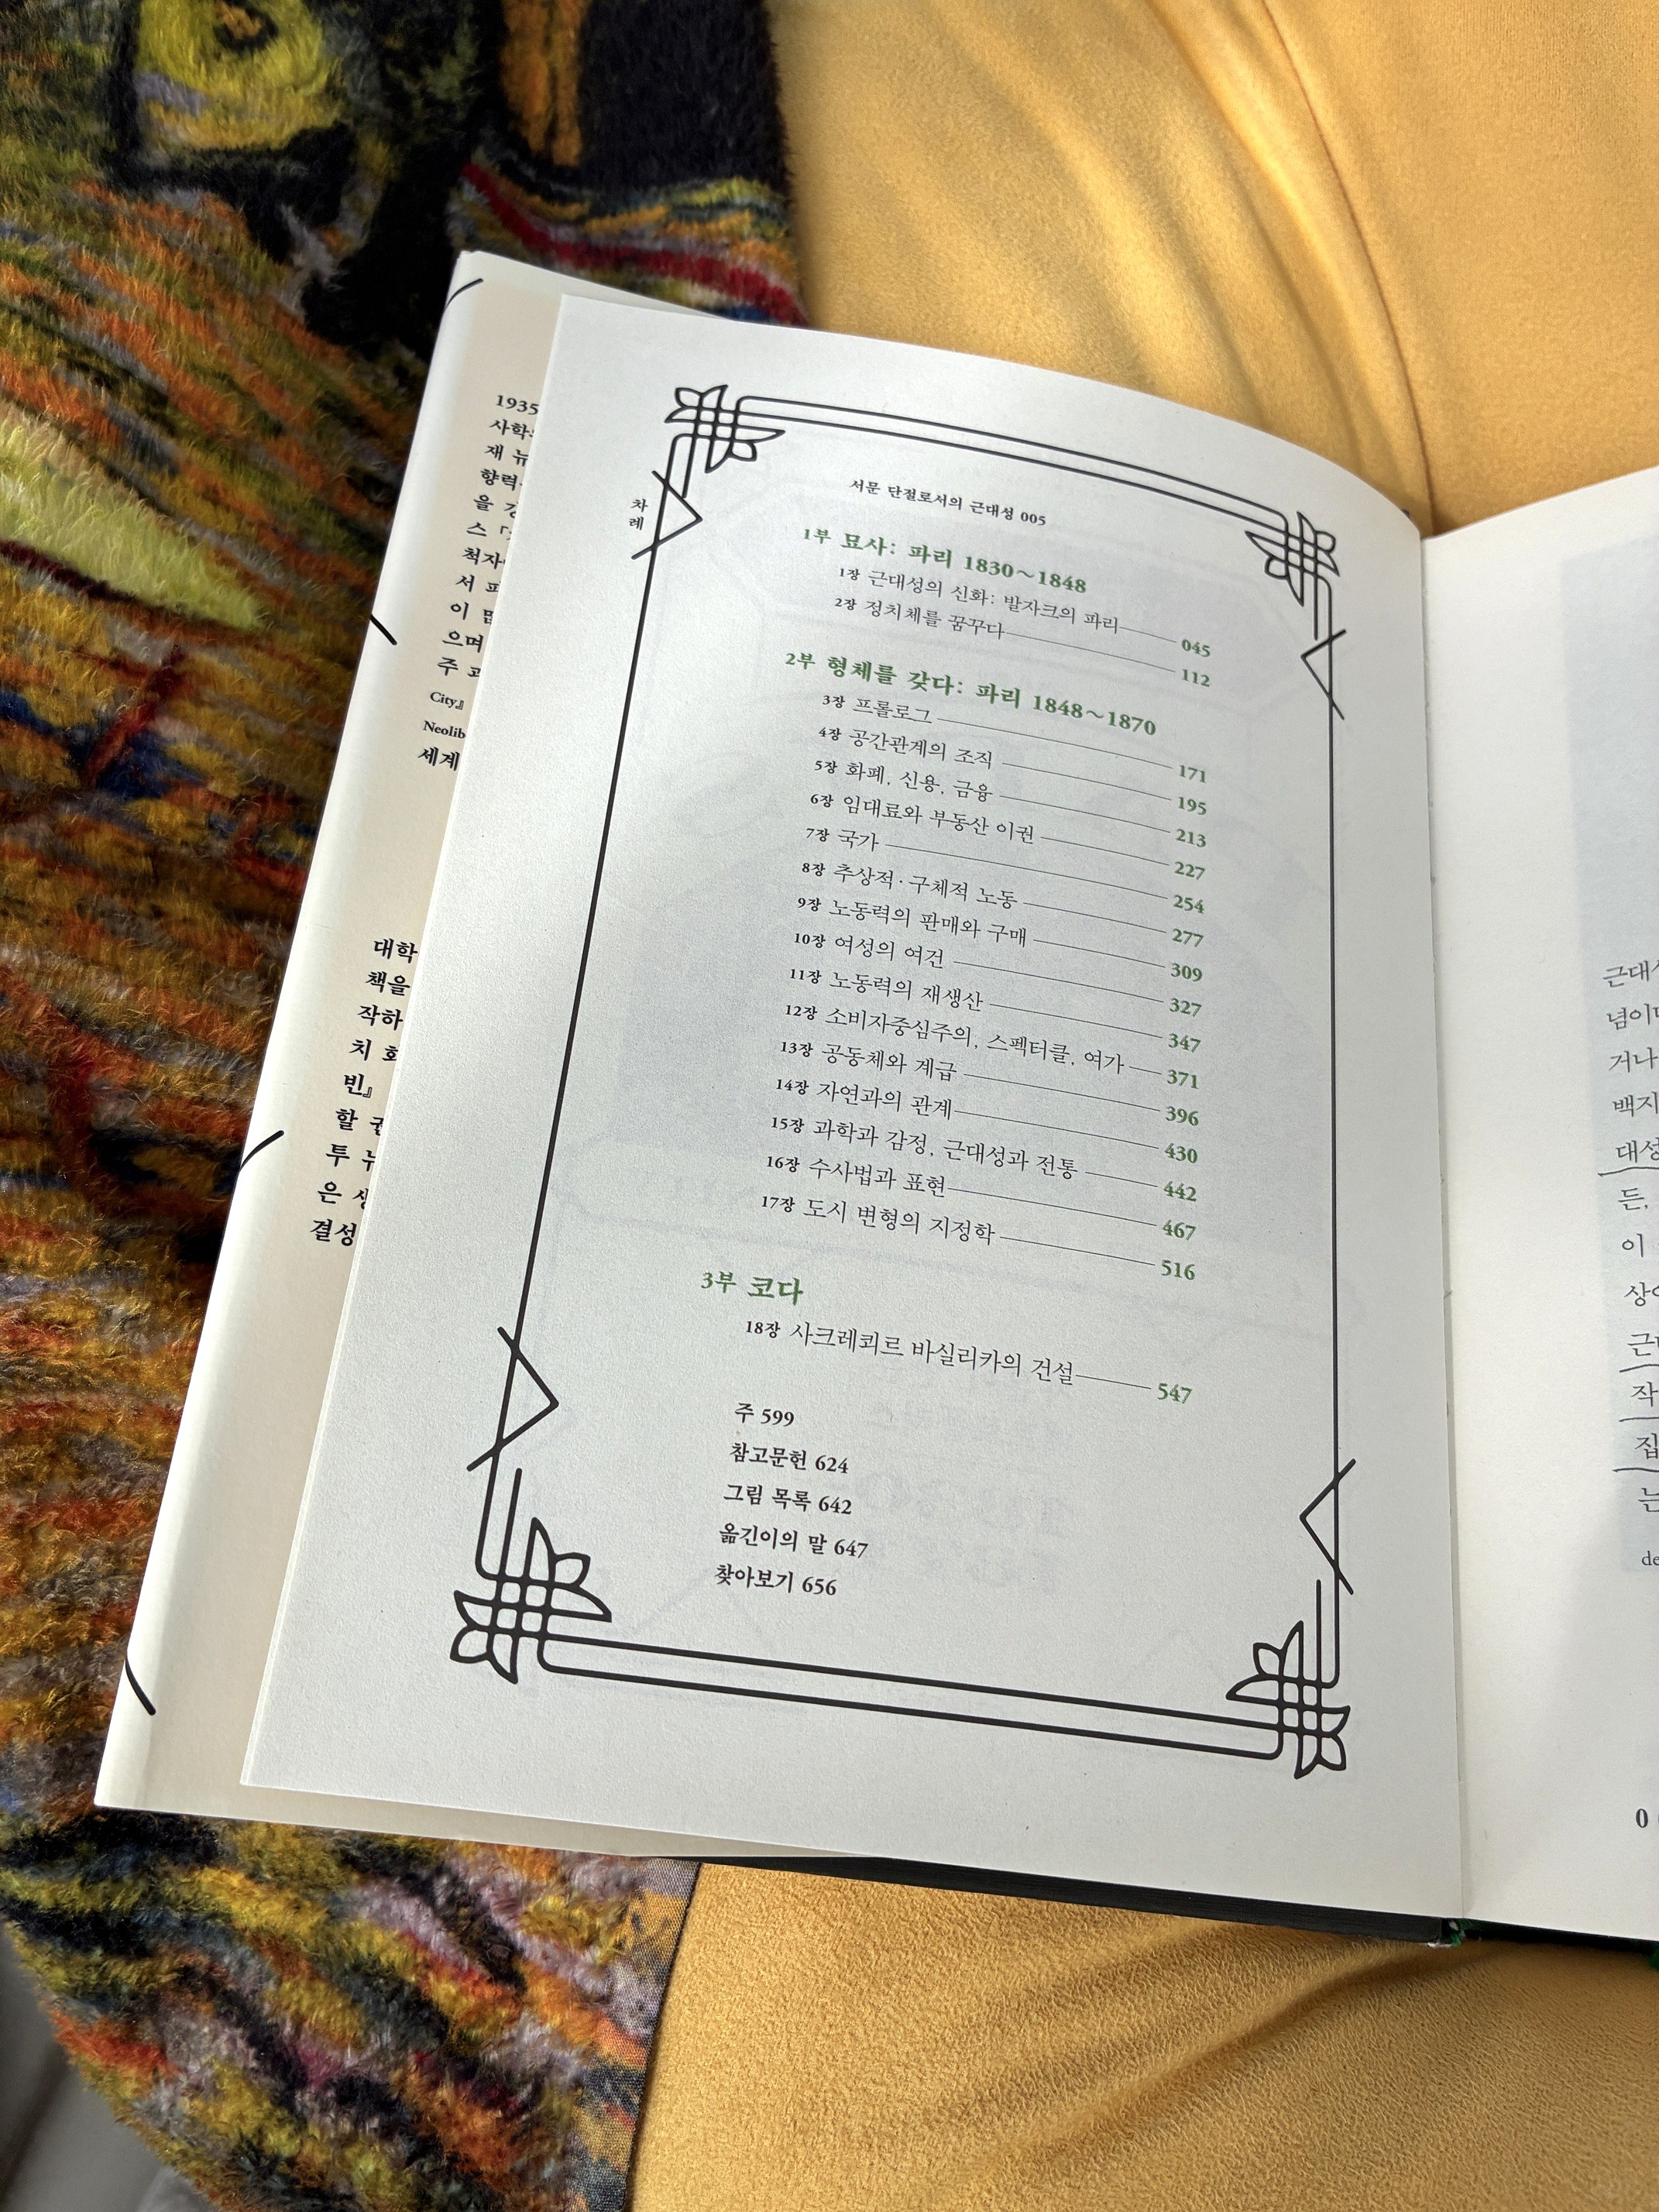 1935
사학
재 뉴
향력
을
스
척자
서
이
으며
주
City』
Neolib
세계
대학
책을
작하
치
빈』
할
투
은
결성
차례
서문 단절로서의 근대성 005
1부 묘사: 파리 1830~1848
1장 근대성의 신화: 발자크의 파리 045
2장 정치체를 꿈꾸다 112
2부 형체를 갖다: 파리 1848~1870
3장 프롤로그 171
4장 공간관계의 조직 195
5장 화폐, 신용, 금융 213
6장 임대료와 부동산 이권 227
7장 국가 254
8장 추상적·구체적 노동 277
9장 노동력의 판매와 구매 309
10장 여성의 여건 327
11장 노동력의 재생산 347
12장 소비자중심주의, 스펙터클, 여가 371
13장 공동체와 계급 396
14장 자연과의 관계 430
15장 과학과 감정, 근대성과 전통 442
16장 수사법과 표현 467
17장 도시 변형의 지정학 516
3부 코다
18장 사크레쾨르 바실리카의 건설 547
주 599
참고문헌 624
그림 목록 642
옮긴이의 말 647
찾아보기 656
근대
념이
거나
백지
대성
든,
이
근
작
집
는
de
0